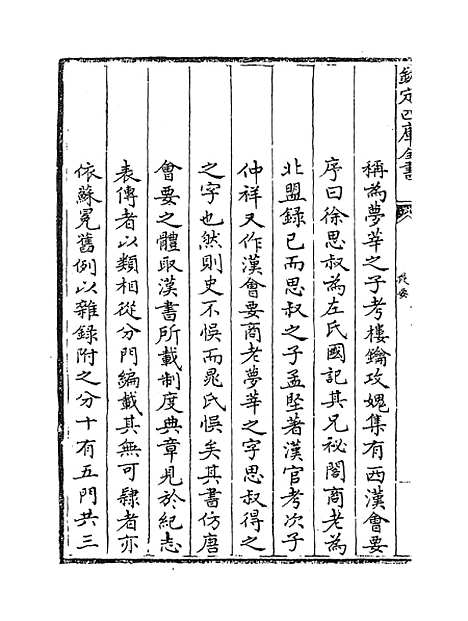 欽定四庫全書
提要
稱為夢莘之子考樓鑰攻媿集有西漢會要
序曰徐思叔為左氏國記其兄祕閣商老為
北盟錄已而思叔之子孟堅著漢官考次子
仲祥又作漢會要商老夢莘之字思叔得之
之字也然則史不悞而晁氏悞矣其書仿唐
會要之體取漢書所載制度典章見於紀志
表傳者以類相從分門編載其無可隸者亦
依蘇冕舊例以雜錄附之分十有五門共三